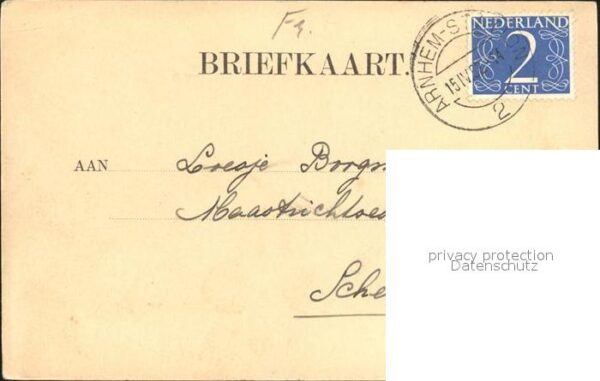 Fr.
BRIEFKAART.
NEDERLAND
2
CENT
ARNHEM-ST
15 IV
2
AAN
Loesje
Maastrichtse
Sche
privacy protection
Datenschutz